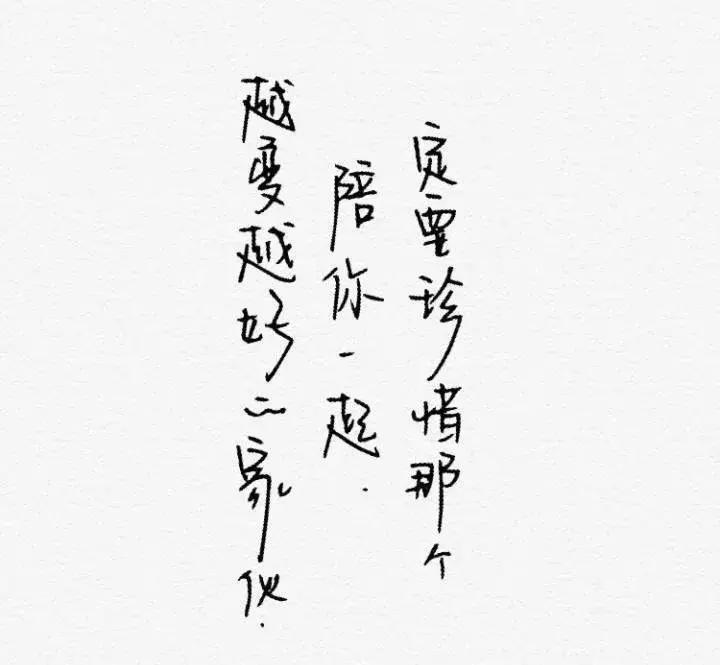 定要珍惜那个
陪你一起.
越变越好的家伙.